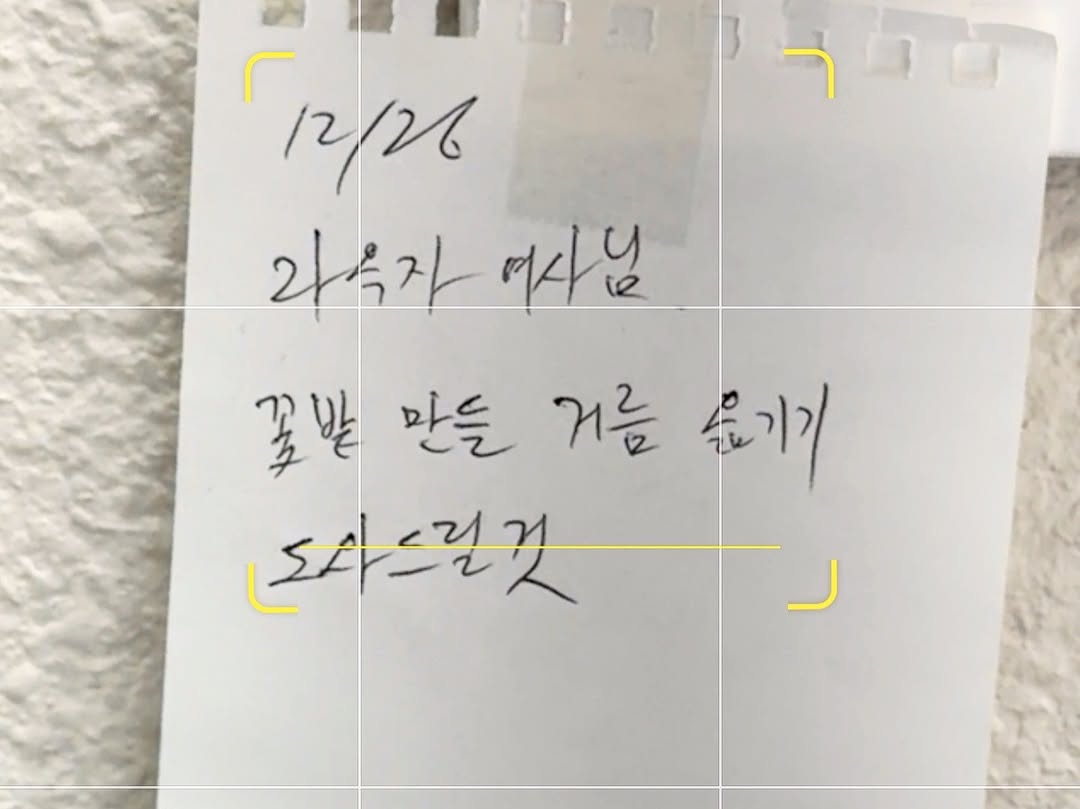 12/26
라옥자 여사님
꽃밭 만들 거름 옮기기
도와드릴것